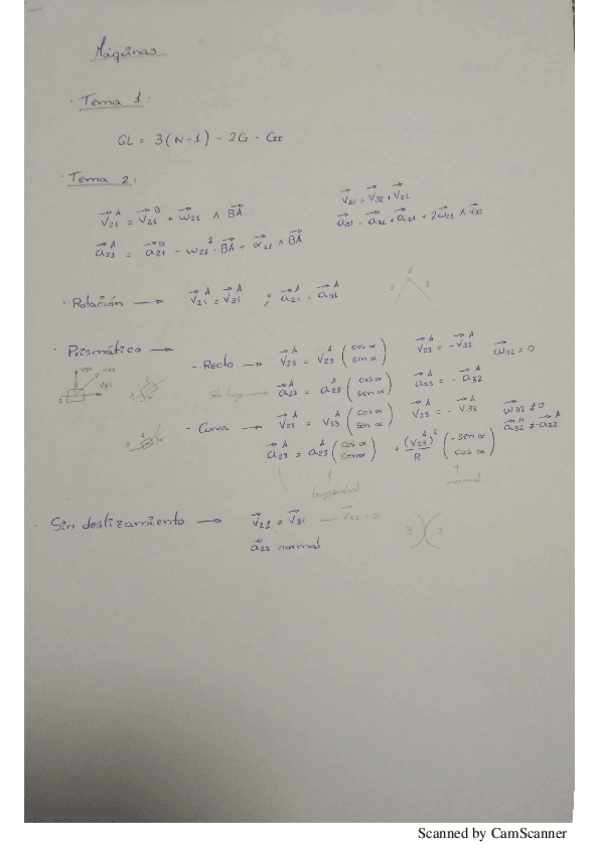 Máquinas
· Tema 1:
GL = 3(N-1) - 2CI - CII
· Tema 2:
v⃗₂₁ᴬ = v⃗₂₁ᴮ + ω⃗₂₁ ∧ BA⃗
v⃗₃₁ = v⃗₃₂ + v⃗₂₁
a⃗₂₁ᴬ = a⃗₂₁ᴮ - ω₂₁² · BA⃗ + α⃗₂₁ ∧ BA⃗
a⃗₃₁ = a⃗₃₂ + a⃗₂₁ + 2ω⃗₂₁ ∧ v⃗₃₂
· Rotación → v⃗₂₁ᴬ = v⃗₃₁ᴬ ; a⃗₂₁ᴬ = a⃗₃₁ᴬ
2 3
· Prismático →
- Recto → v⃗₂₃ᴬ = v₂₃ᴬ (cos α sen α) v⃗₂₃ᴬ = - v⃗₃₂ᴬ ω⃗₃₂ = 0
a⃗₂₃ᴬ = a₂₃ᴬ (cos α sen α) a⃗₂₃ᴬ = - a⃗₃₂ᴬ
- Curva → v⃗₂₃ᴬ = v₂₃ᴬ (cos α sen α) v⃗₂₃ᴬ = - v⃗₃₂ᴬ ω⃗₃₂ ≠ 0
a⃗₃₂ᴬ ≠ - a⃗₂₃ᴬ
a⃗₂₃ᴬ = a₂₃ᴬ (cos α sen α) + (v₂₃ᴬ)²/R (- sen α cos α)
tangencial normal
· Sin deslizamiento → v⃗₂₁ = v⃗₃₁ — v⃗₃₂ = 0
3 2
a⃗₂₃ normal
Scanned by CamScanner